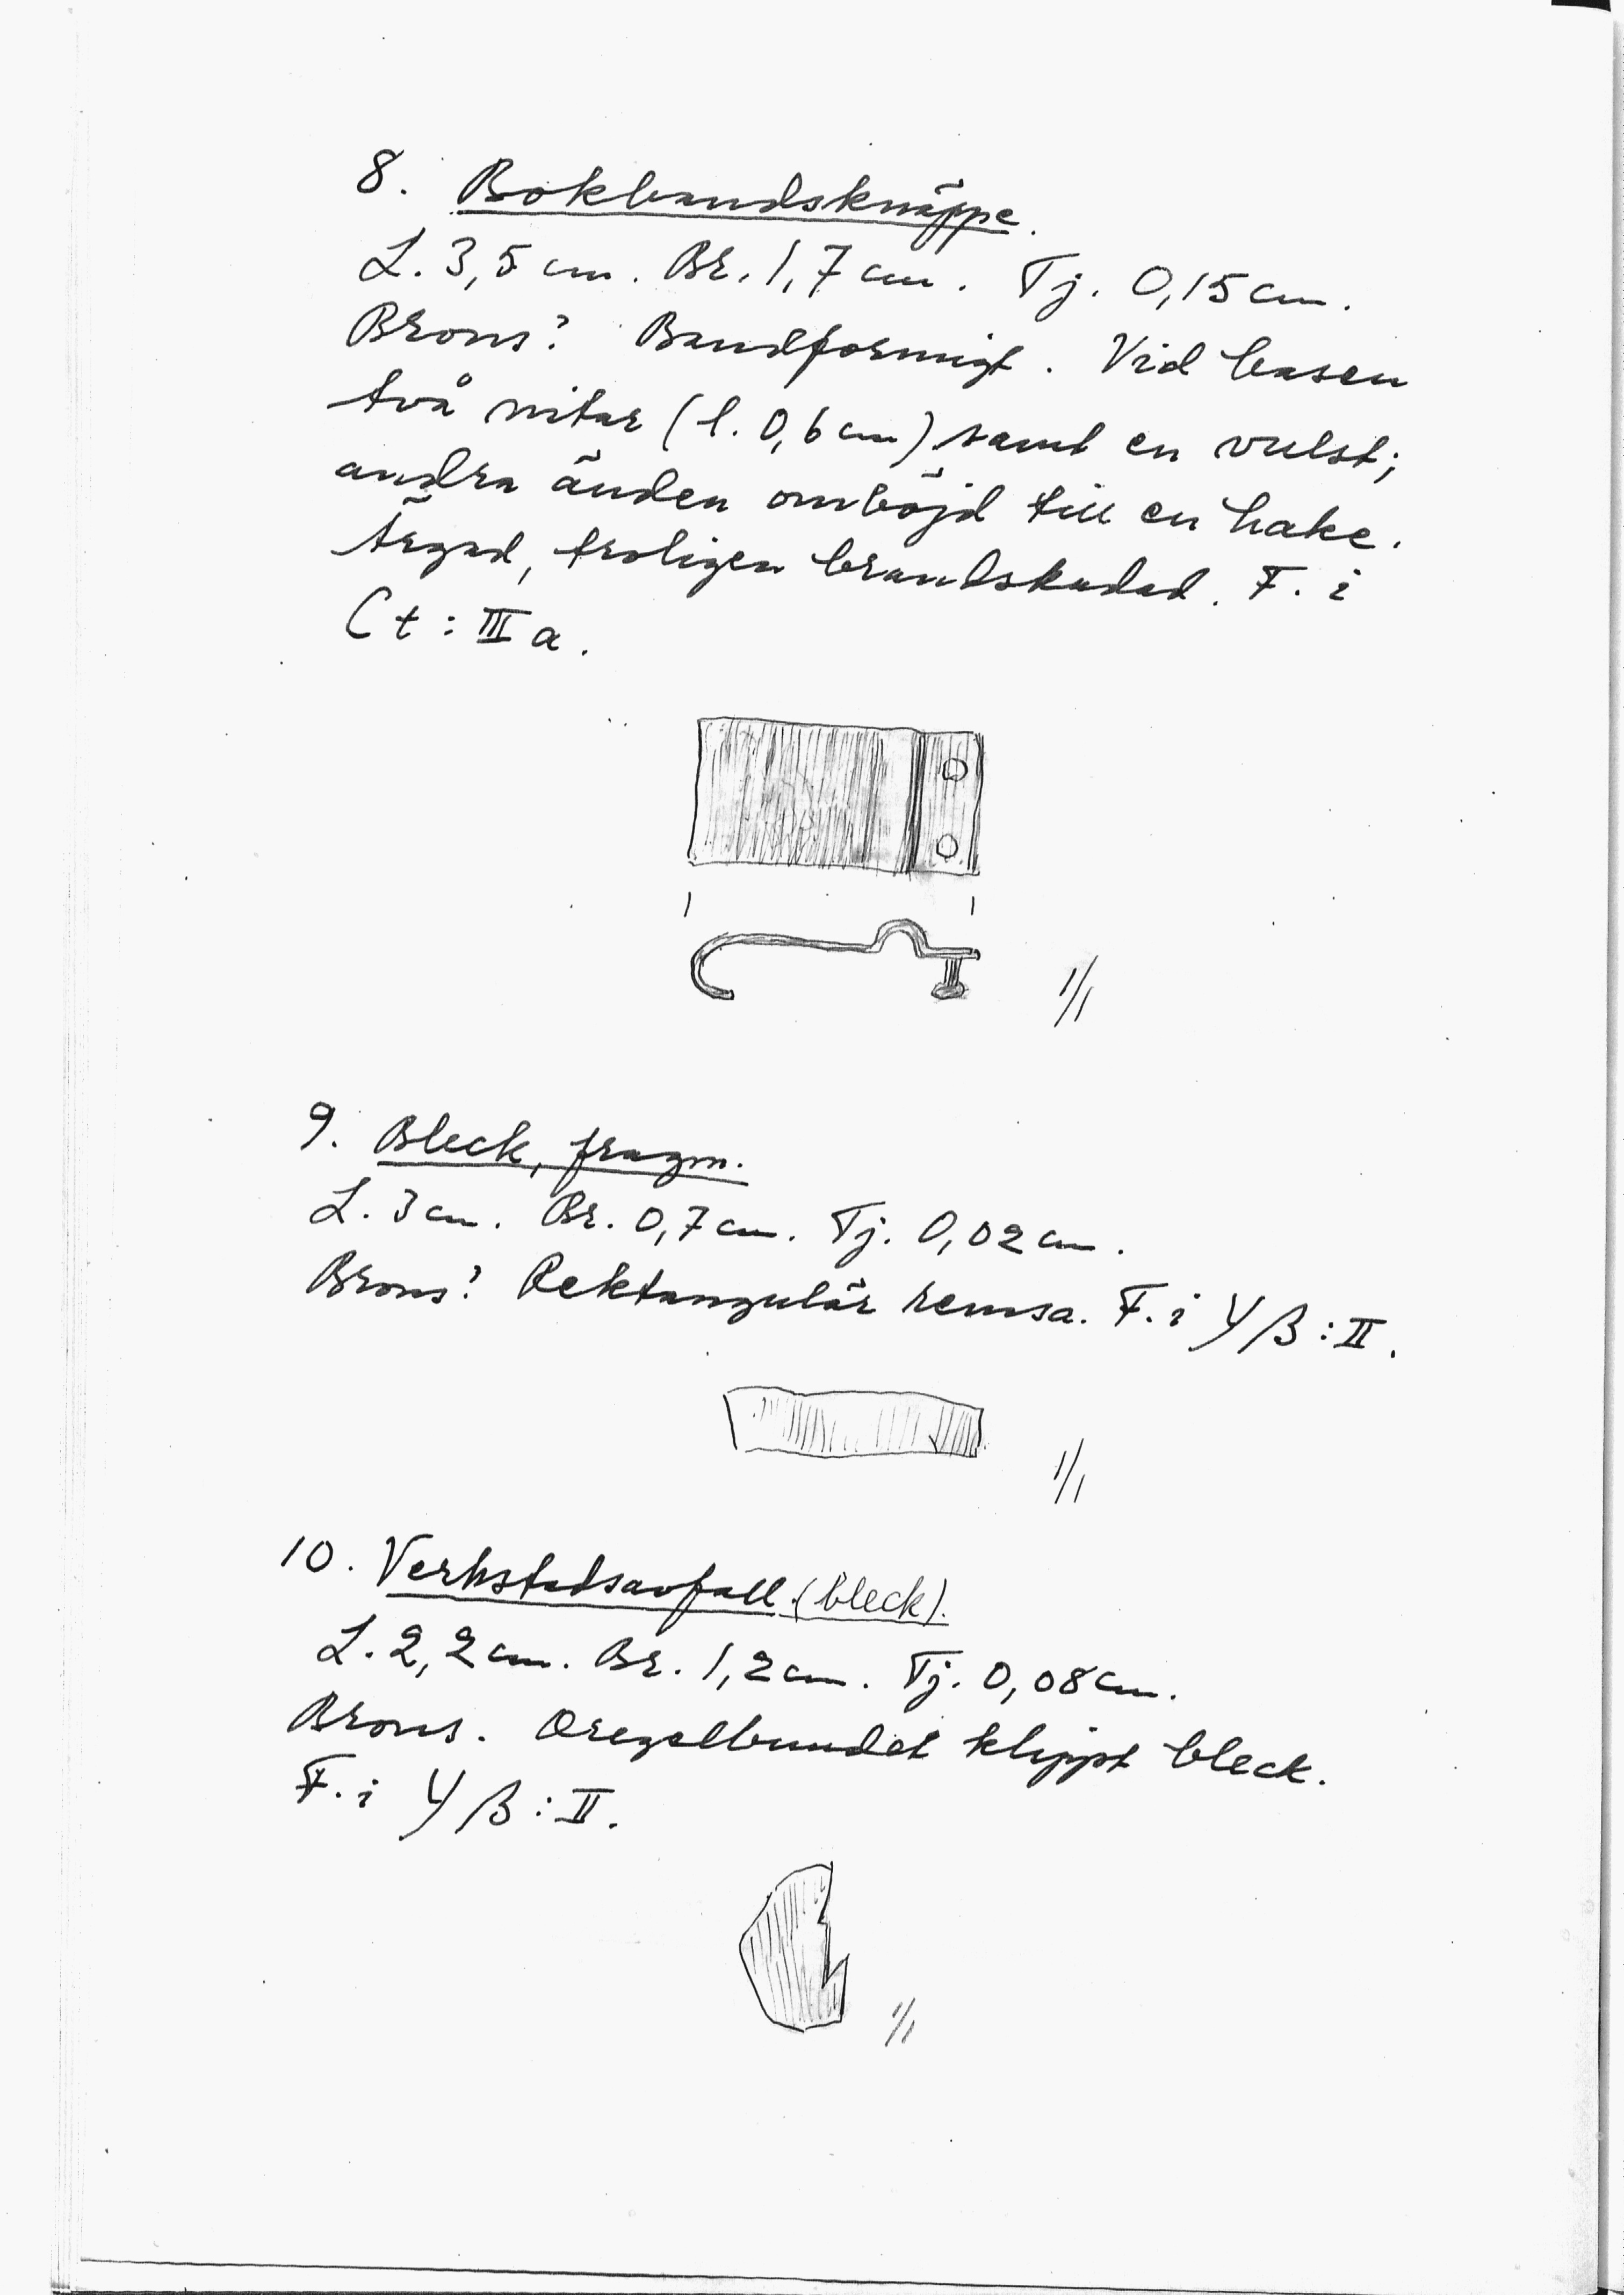 8. Bokbandsknäppe.
L. 3,5 cm. Br. 1,7 cm. Tj. 0,15 cm.
Brons? Bandformigt. Vid basen
två nitar (l. 0,6 cm) samt en vulst;
andra änden omböjd till en hake.
Ärgad, troligen brandskadad. F. i
Ct : III a.
1/1
9. Bleck, fragm.
L. 3 cm. Br. 0,7 cm. Tj. 0,02 cm.
Brons? Rektangulär remsa. F. i Yβ : II.
1/1
10. Verkstadsavfall (bleck).
L. 2,2 cm. Br. 1,2 cm. Tj. 0,08 cm.
Brons. Oregelbundet klippt bleck.
F. i Yβ : II.
1/1